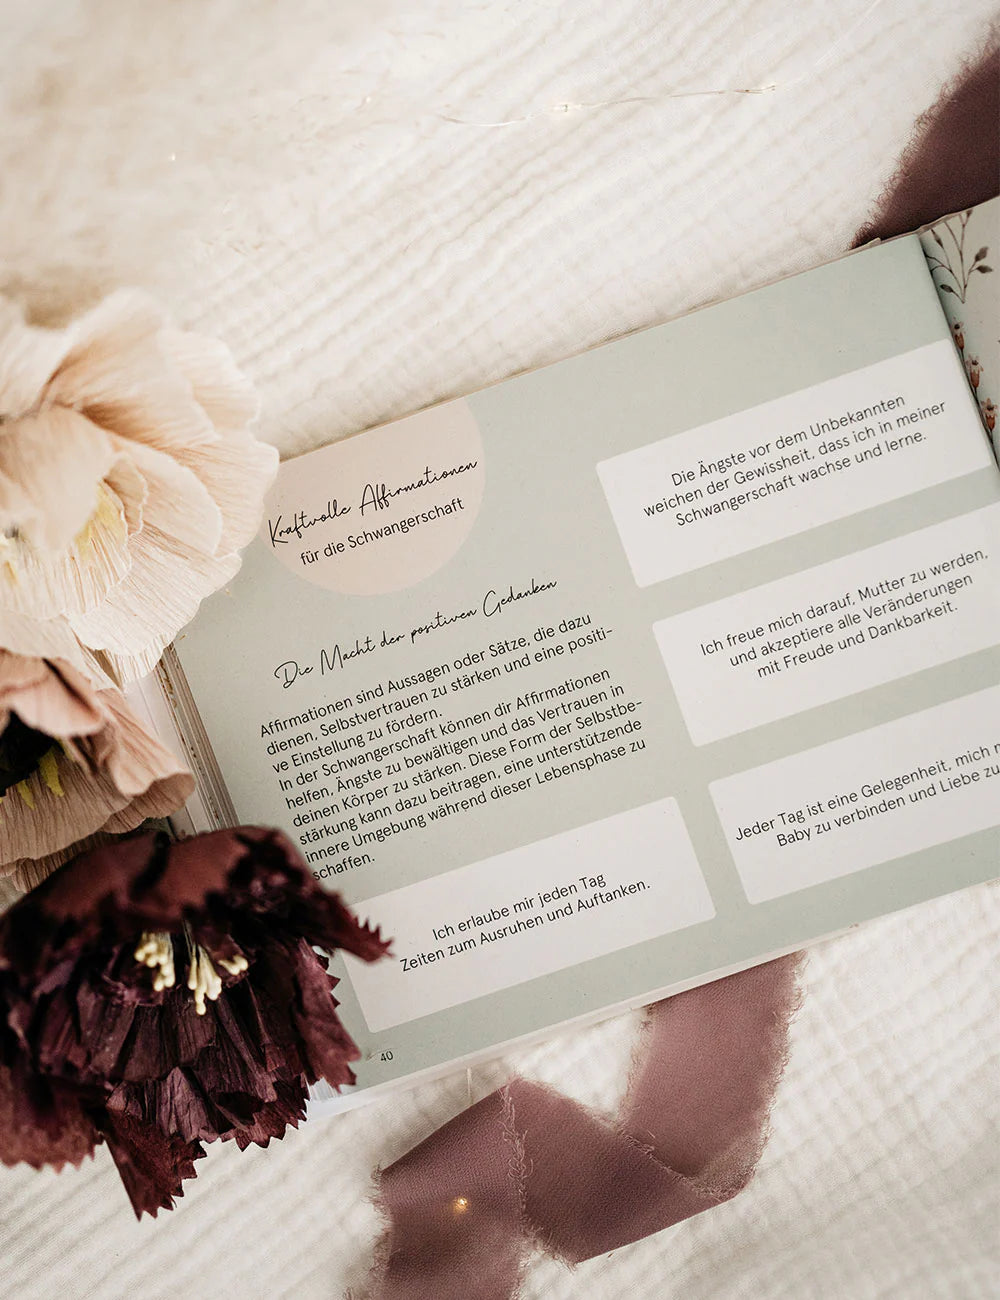 Kraftvolle Affirmationen
für die Schwangerschaft
Die Macht der positiven Gedanken
Affirmationen sind Aussagen oder Sätze, die dazu
dienen, Selbstvertrauen zu stärken und eine positi-
ve Einstellung zu fördern.
In der Schwangerschaft können dir Affirmationen
helfen, Ängste zu bewältigen und das Vertrauen in
deinen Körper zu stärken. Diese Form der Selbstbe-
stärkung kann dazu beitragen, eine unterstützende
innere Umgebung während dieser Lebensphase zu
schaffen.
Ich erlaube mir jeden Tag
Zeiten zum Ausruhen und Auftanken.
40
Die Ängste vor dem Unbekannten
weichen der Gewissheit, dass ich in meiner
Schwangerschaft wachse und lerne.
Ich freue mich darauf, Mutter zu werden,
und akzeptiere alle Veränderungen
mit Freude und Dankbarkeit.
Jeder Tag ist eine Gelegenheit, mich
Baby zu verbinden und Liebe zu